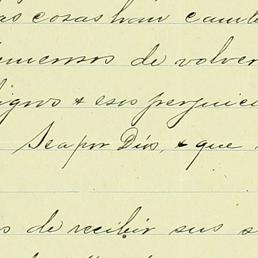 as cosas han camb
de volver
ligros & esos perjuici
Sea por Dios, & que
s de recibir sus s